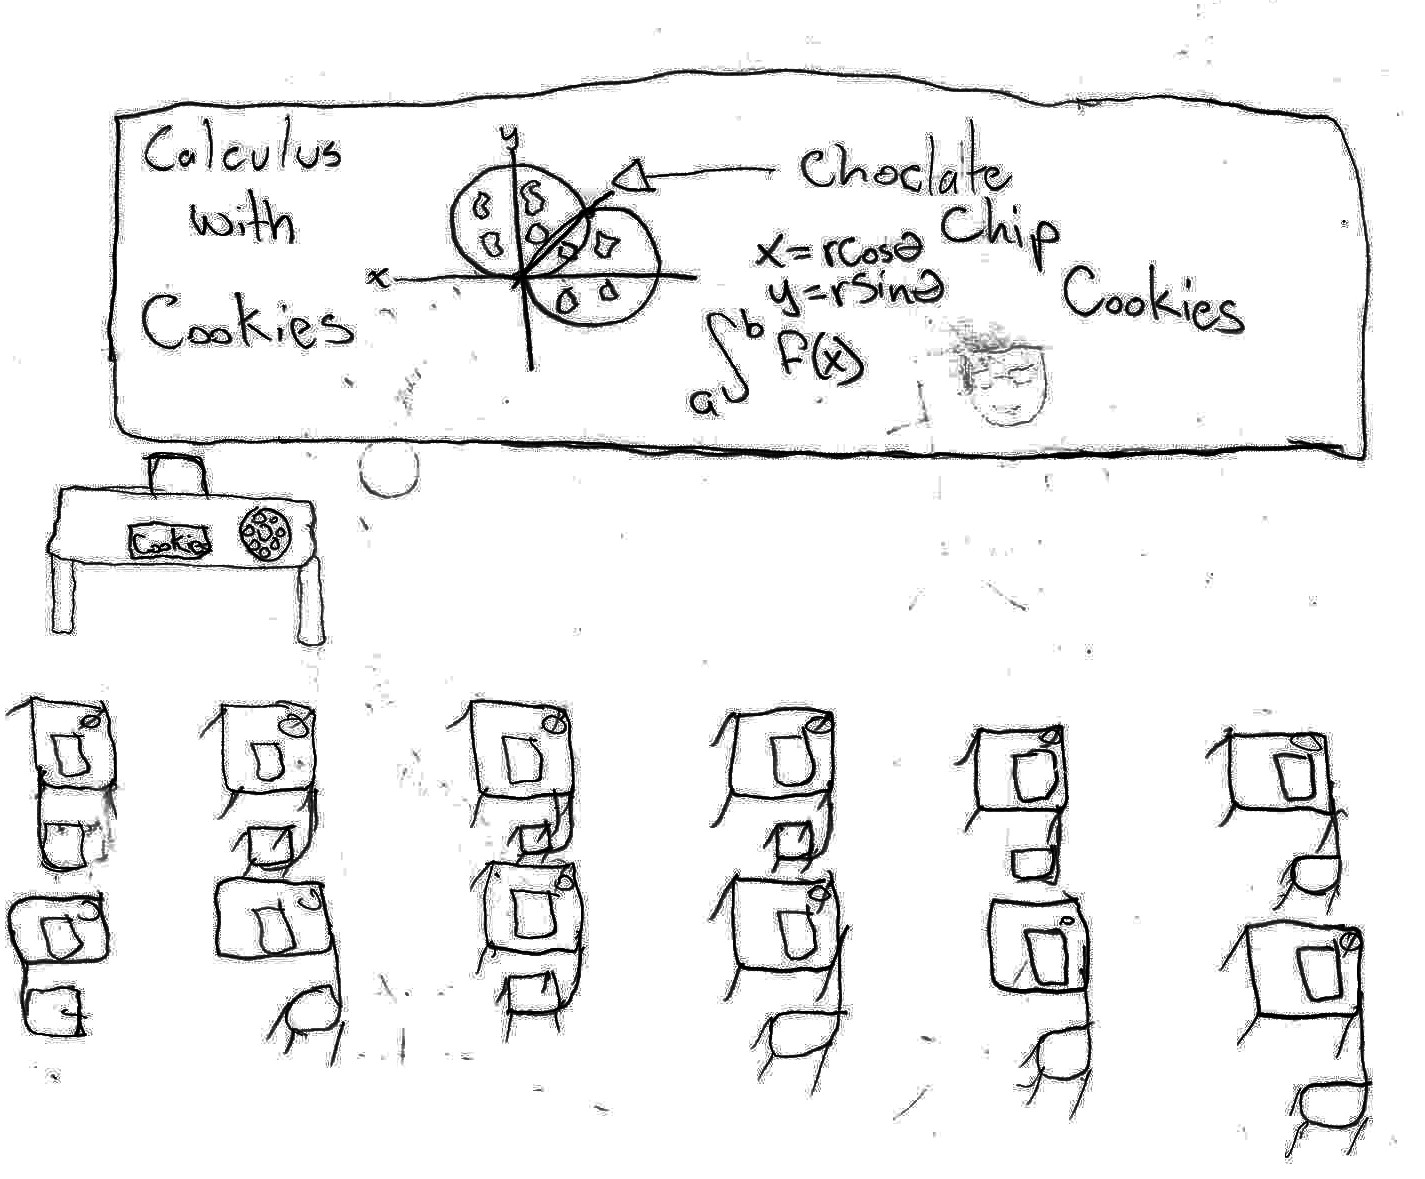 Calculus
with
Cookies
y
x
Choclate
Chip
Cookies
x=rcosθ
y=rsinθ
∫ b a f(x)
Cookies